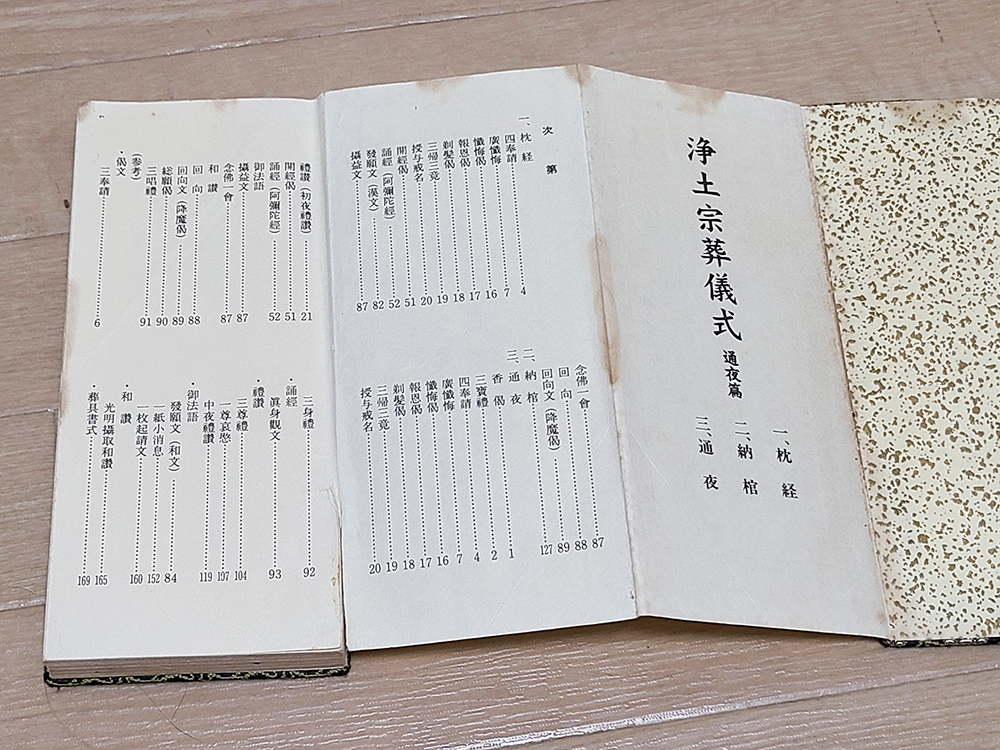 浄土宗葬儀式 通夜篇
一、枕経
二、納棺
三、通夜
次第
一、枕経
四奉請……4
廣懺悔……7
懺悔偈……16
報恩偈……17
剃髪偈……18
三帰三竟……19
授与戒名……20
開經偈……51
誦經(阿彌陀經)……52
發願文(漢文)……82
攝益文……87
念佛一會……87
回向……88
回向文(降魔偈)……89
二、納棺……127
三、通夜
香偈……1
三寶禮……2
四奉請……4
廣懺悔……7
懺悔偈……16
報恩偈……17
剃髪偈……18
三帰三竟……19
授与戒名……20
禮讃(初夜禮讃)……21
開經偈……51
誦經(阿彌陀經)……52
御法語
攝益文……87
念佛一會……87
和讃
回向……88
回向文(降魔偈)……89
総願偈……90
三唱禮……91
(参考)
・偈文
三奉請……6
三身禮……92
・誦經
眞身觀文……93
・禮讃
三尊禮……104
一尊哀愍……197
中夜禮讃……119
・御法語
發願文(和文)……84
一紙小消息……152
一枚起請文……160
・和讃
光明攝取和讃……165
・葬具書式……169